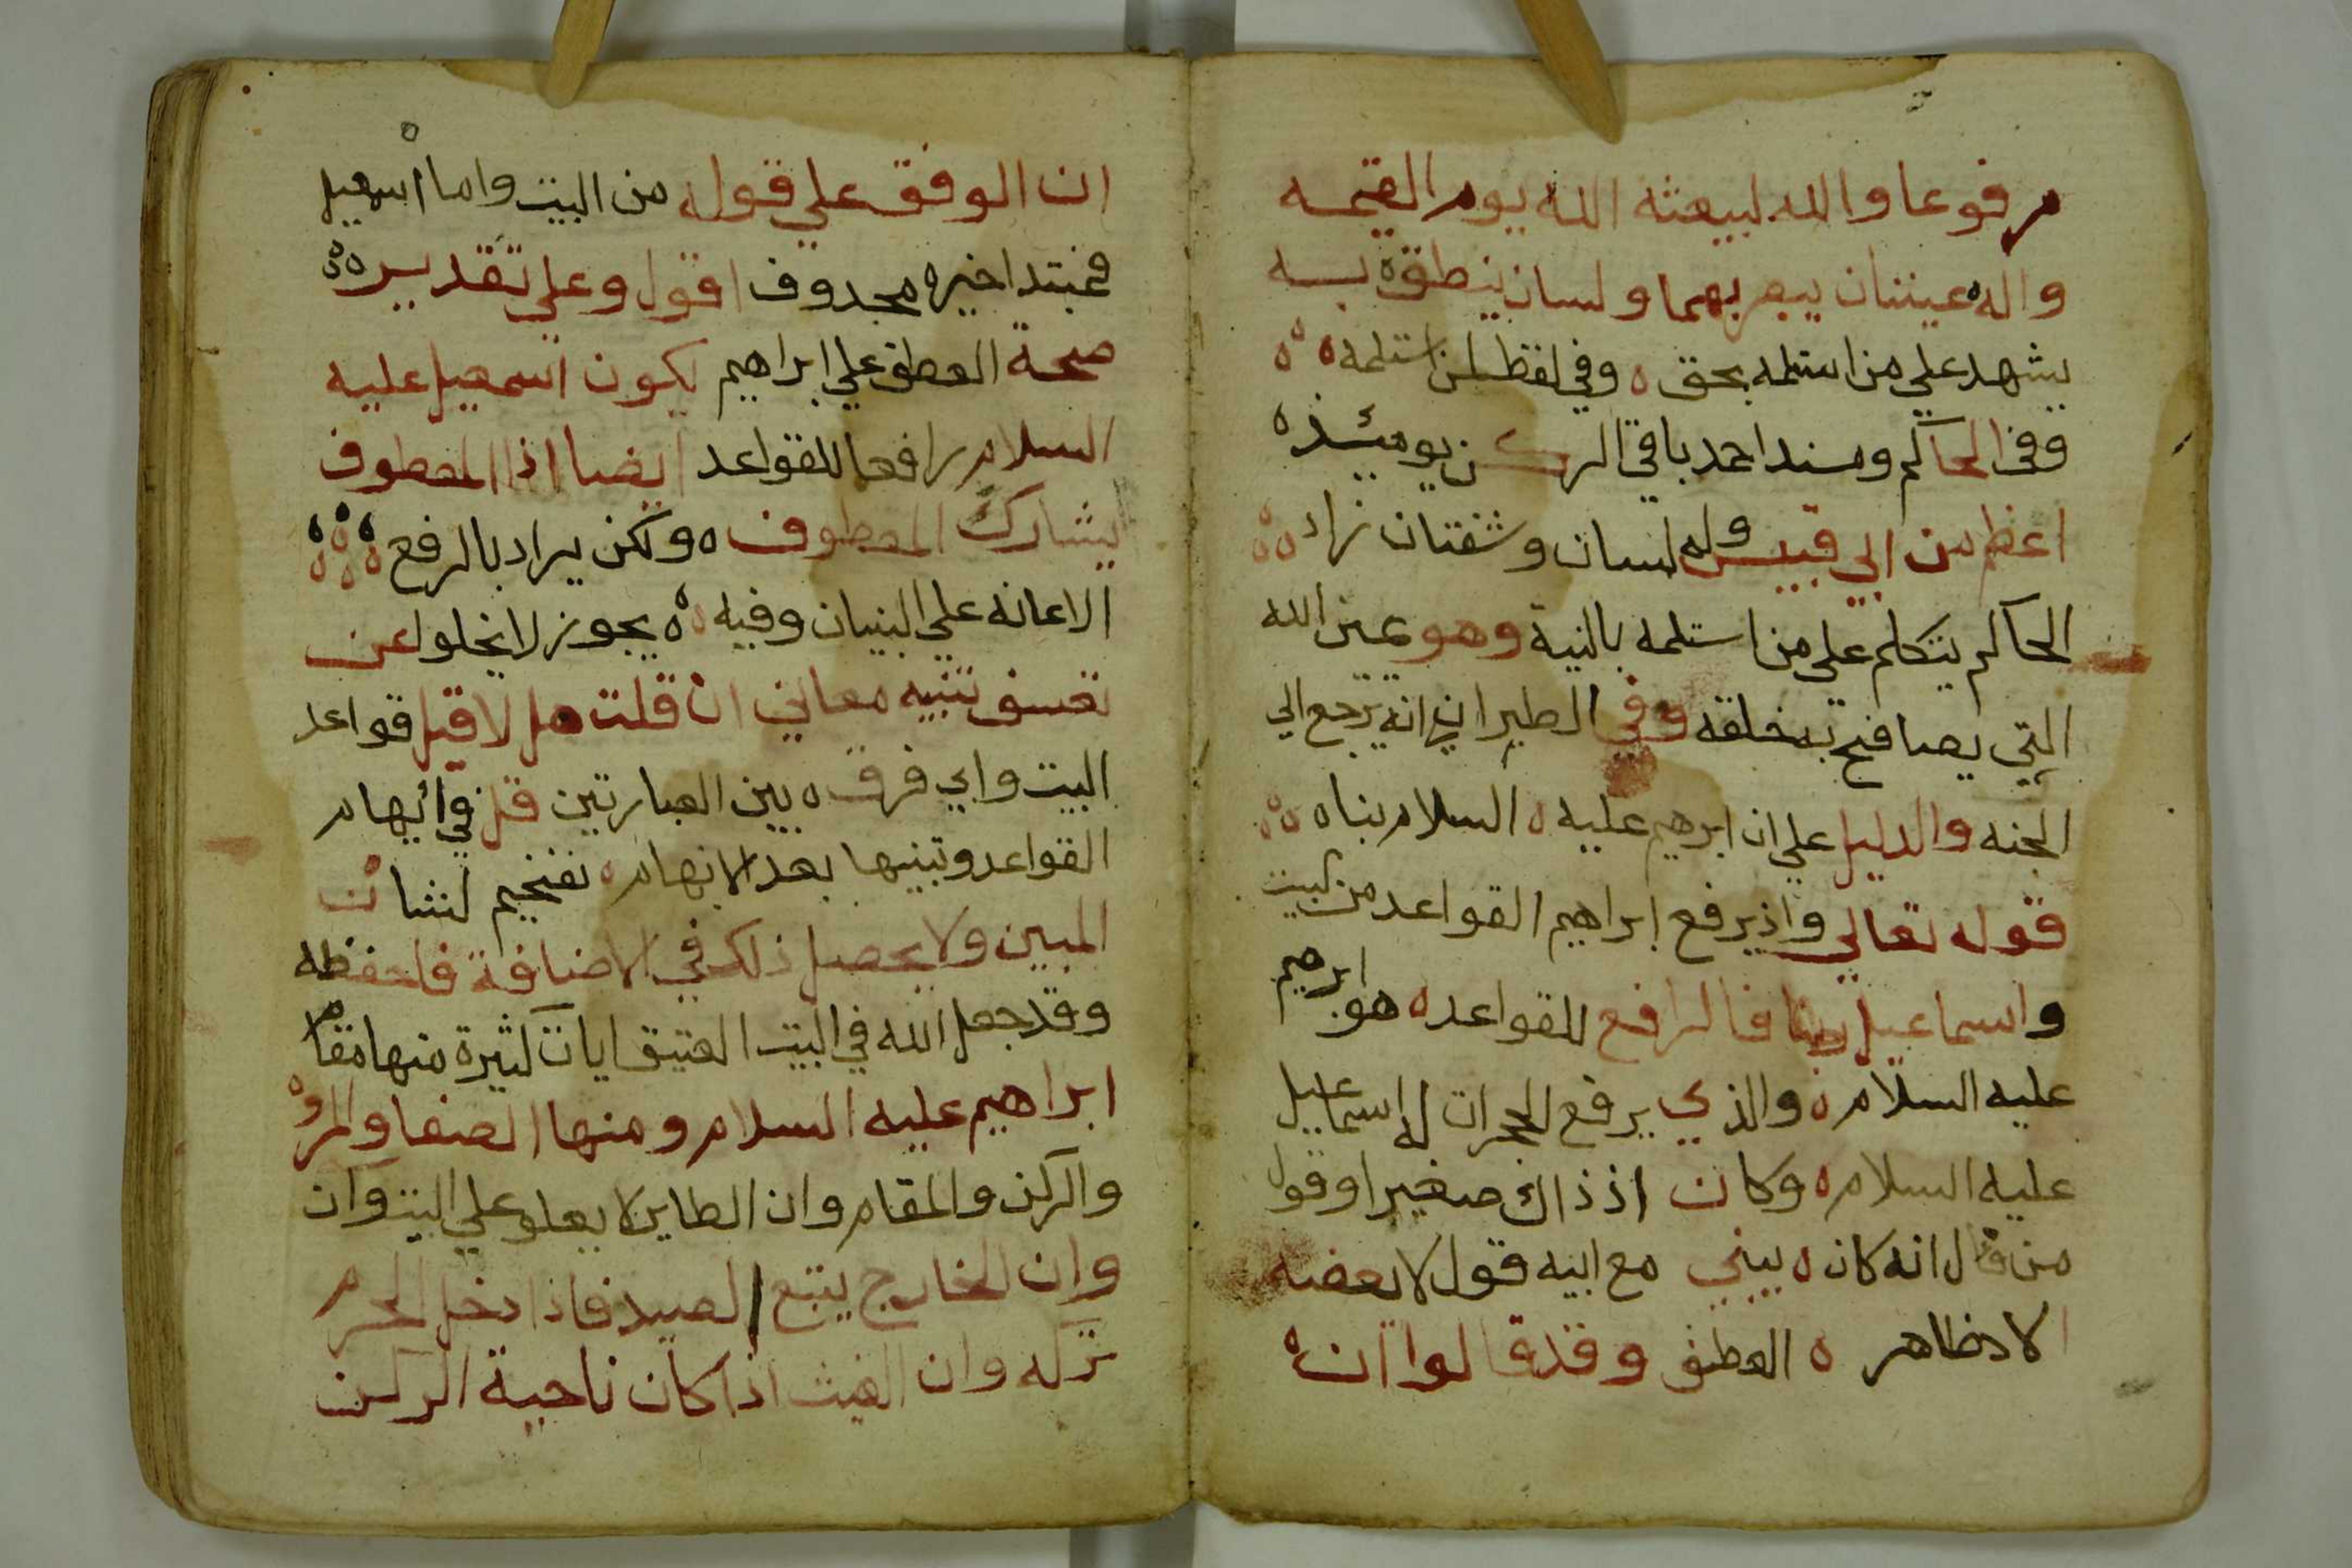 مرفوعا والله ليبعثه الله يوم القيمه
واله عينتان يبصر بهما ولسان ينطق ه به
يشهد علي من استلمه بحق ه وفي لفظ لمن استلمه ه ه
وفي الحاكم ومسند احمد باقي الركن يوميئذه
اعظم من ابي قبيس وله لسان وشفتان زاد ه ه
الحاكم يتكلم علي من استلمه بالنية وهو يمين الله
التي يصافح به خلقه وفي الطبراني انه يرجع الي
الجنه والدليل علي ان ابرهيم عليه ه السلام بناه ه ه
قوله تعالي واذ يرفع ابراهيم القواعد من البيت
واسماعيل ربنا فالرافع للقواعد ه هو ابرهيم
عليه السلام ه والذي يرفع الحجرات له اسماعيل
عليه السلام ه وكان اذ ذاك صغيرا وقول
من قال انه كان ه يبني مع ابيه قول لا يعضه
الا دظاهر ه العطف وقد قالوا ان ه
ان الوفق علي قوله من البيت واما اسمعيل
فمبتدا خبره محدوف اقول وعلي تقديره ه
صحة العطف علي ابراهيم يكون اسمعيل عليه
السلام رافعا للقواعد ايضا اذا المعطوف
يشارك المعطوف ه ولكن يراد بالرفع ه ه ه
الاعانه علي البنيان وفيه ه ه يجوز لا يخلوا عن
تعسف تنبيه معاني ان قلت هل لا قيل قواعد
البيت واي فرق ه بين العبارتين قل في ايهام
القواعد وتبنيها بعد الابهام ه تفخيم لشان
المبين ولا يحصل ذلك في الاضافة فاحفظه
وقد جعل الله في البيت العتيق ايات كثيرة منها مقام
ابراهيم عليه السلام ومنها الصفا والمروه
والركن والمقام وان الطاير لا يعلو علي البيت وان
وان الخارج يتبع الصيد فاذا دخل الحرم
تركه وان الغيث اذا كان ناحية الركن